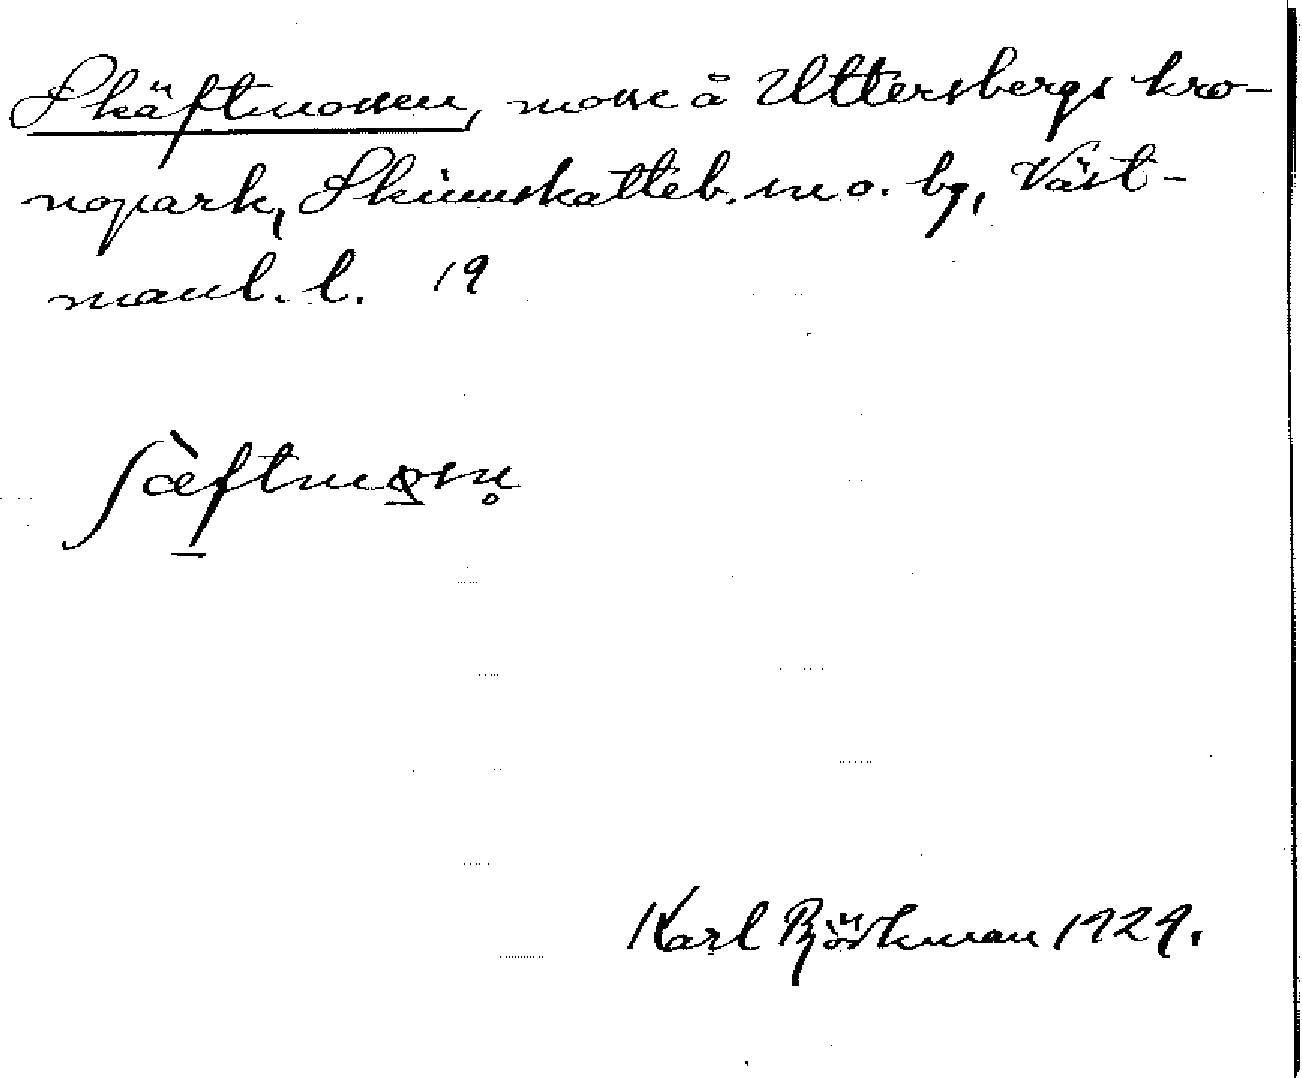 Skäftmossen, mosse å Uttersbergs kro-
nopark, Skinnskatteb. sn o. bg, Väst-
manl. l. 19
Karl Björkman 1929.